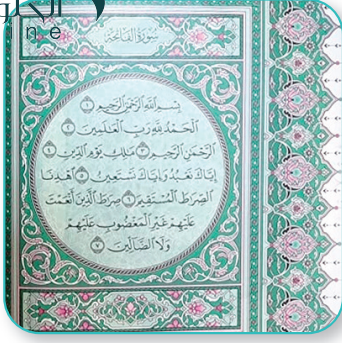 ine
سُورَةُ الفَاتِحَةِ
بِسْمِ اللَّهِ الرَّحْمَٰنِ الرَّحِيمِ ١
الْحَمْدُ لِلَّهِ رَبِّ الْعَالَمِينَ ٢
الرَّحْمَٰنِ الرَّحِيمِ ٣ مَالِكِ يَوْمِ الدِّينِ ٤
إِيَّاكَ نَعْبُدُ وَإِيَّاكَ نَسْتَعِينُ ٥ اهْدِنَا
الصِّرَاطَ الْمُسْتَقِيمَ ٦ صِرَاطَ الَّذِينَ أَنْعَمْتَ
عَلَيْهِمْ غَيْرِ الْمَغْضُوبِ عَلَيْهِمْ
وَلَا الضَّالِّينَ ٧